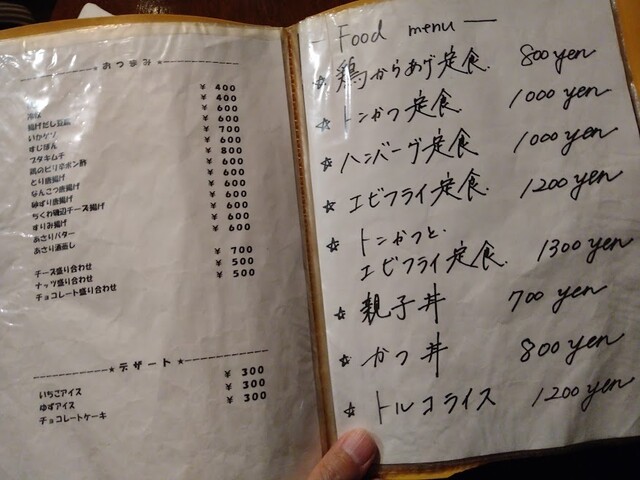 おつまみ
¥ 400
¥ 400
揚げだし豆腐 ¥ 600
いかゲソ ¥ 700
すじぽん ¥ 600
ブタキムチ ¥ 800
鶏のピリ辛ポン酢 ¥ 600
とり唐揚げ ¥ 600
なんこつ唐揚げ ¥ 600
砂ずり唐揚げ ¥ 600
ちくわ磯辺チーズ揚げ ¥ 600
すりみ揚げ ¥ 600
あさりバター
あさり酒蒸し
チーズ盛り合わせ ¥ 700
ナッツ盛り合わせ ¥ 500
チョコレート盛り合わせ ¥ 500
★ デザート ★
いちごアイス ¥ 300
ゆずアイス ¥ 300
チョコレートケーキ ¥ 300
— Food menu —
☆ 鶏からあげ定食 800 yen
☆ トンかつ定食 1000 yen
☆ ハンバーグ定食 1000 yen
☆ エビフライ定食 1200 yen
☆ トンかつと、
エビフライ定食 1300 yen
☆ 親子丼 700 yen
☆ かつ丼 800 yen
☆ トルコライス 1200 yen